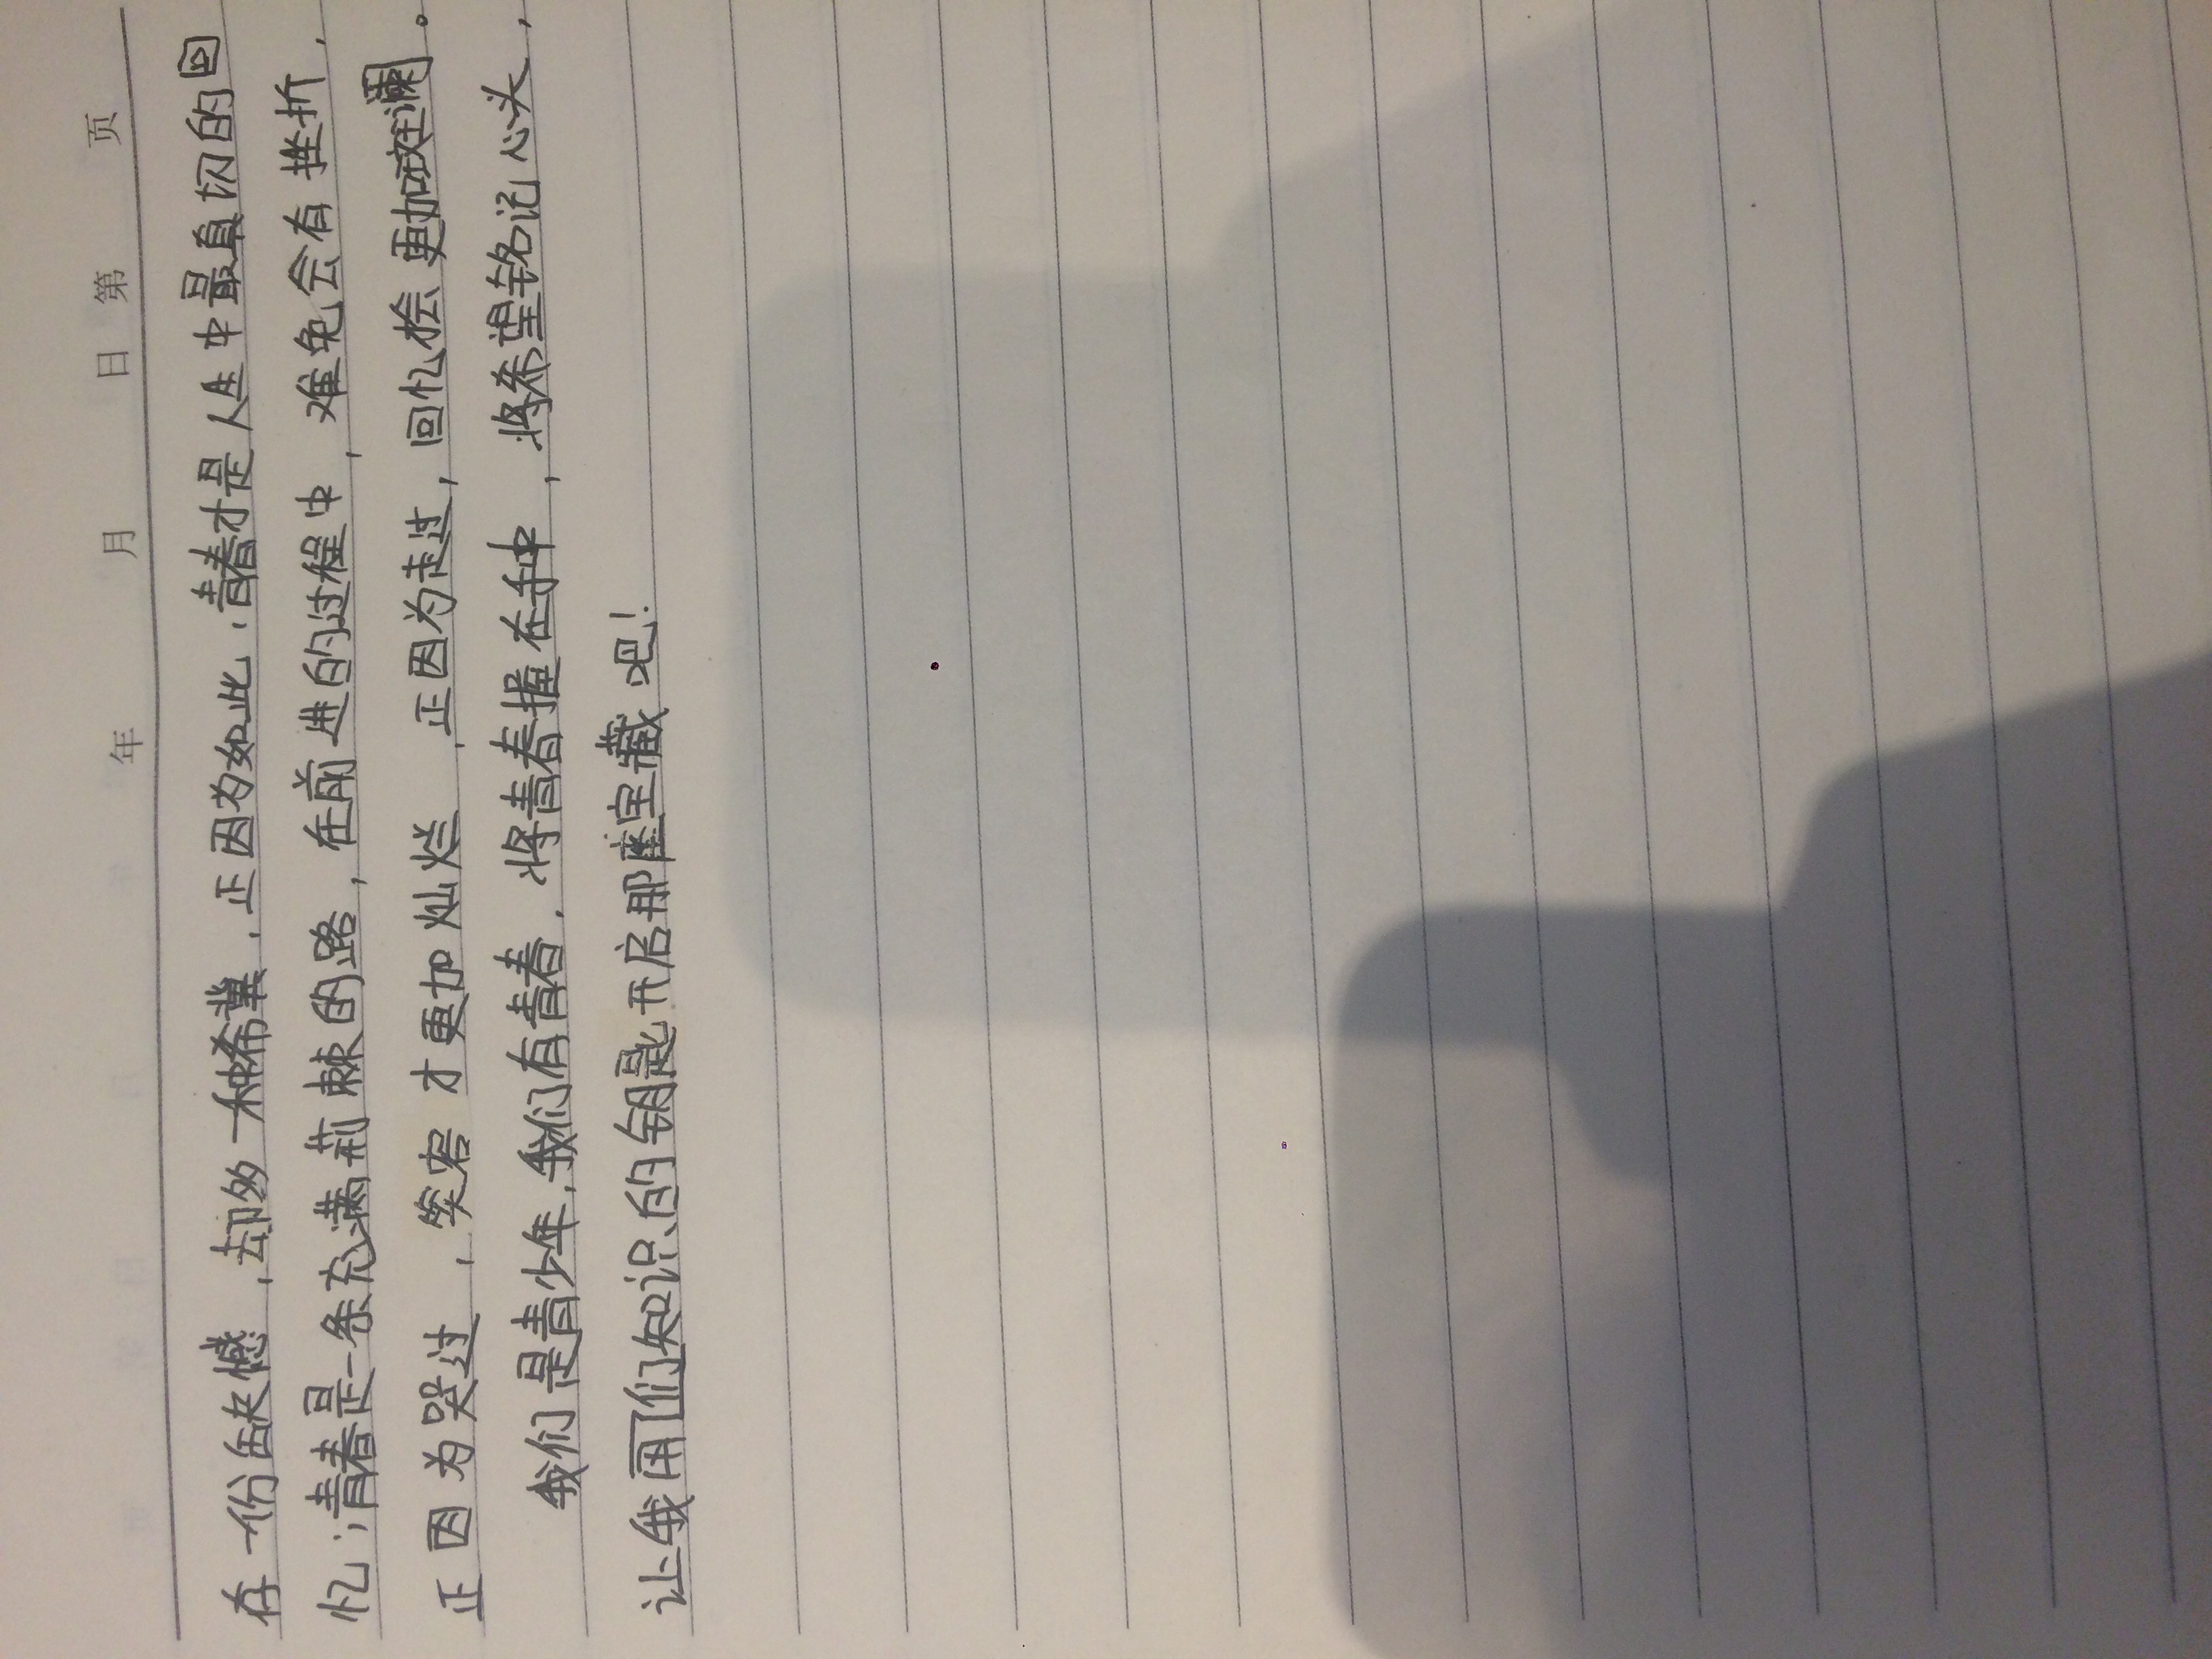 年 月 日 第 页
存一份缺憾，却多一种希冀，正因为如此，青春才是人生中最真切的回
忆；青春是一条充满荆棘的路，在前进的过程中，难免会有挫折，
正因为哭过，笑容才更加灿烂，正因为走过，回忆会更加斑斓。
我们是青少年，我们有青春，将青春握在手中，将希望铭记心头，
让我们用知识的钥匙开启那座宝藏吧！